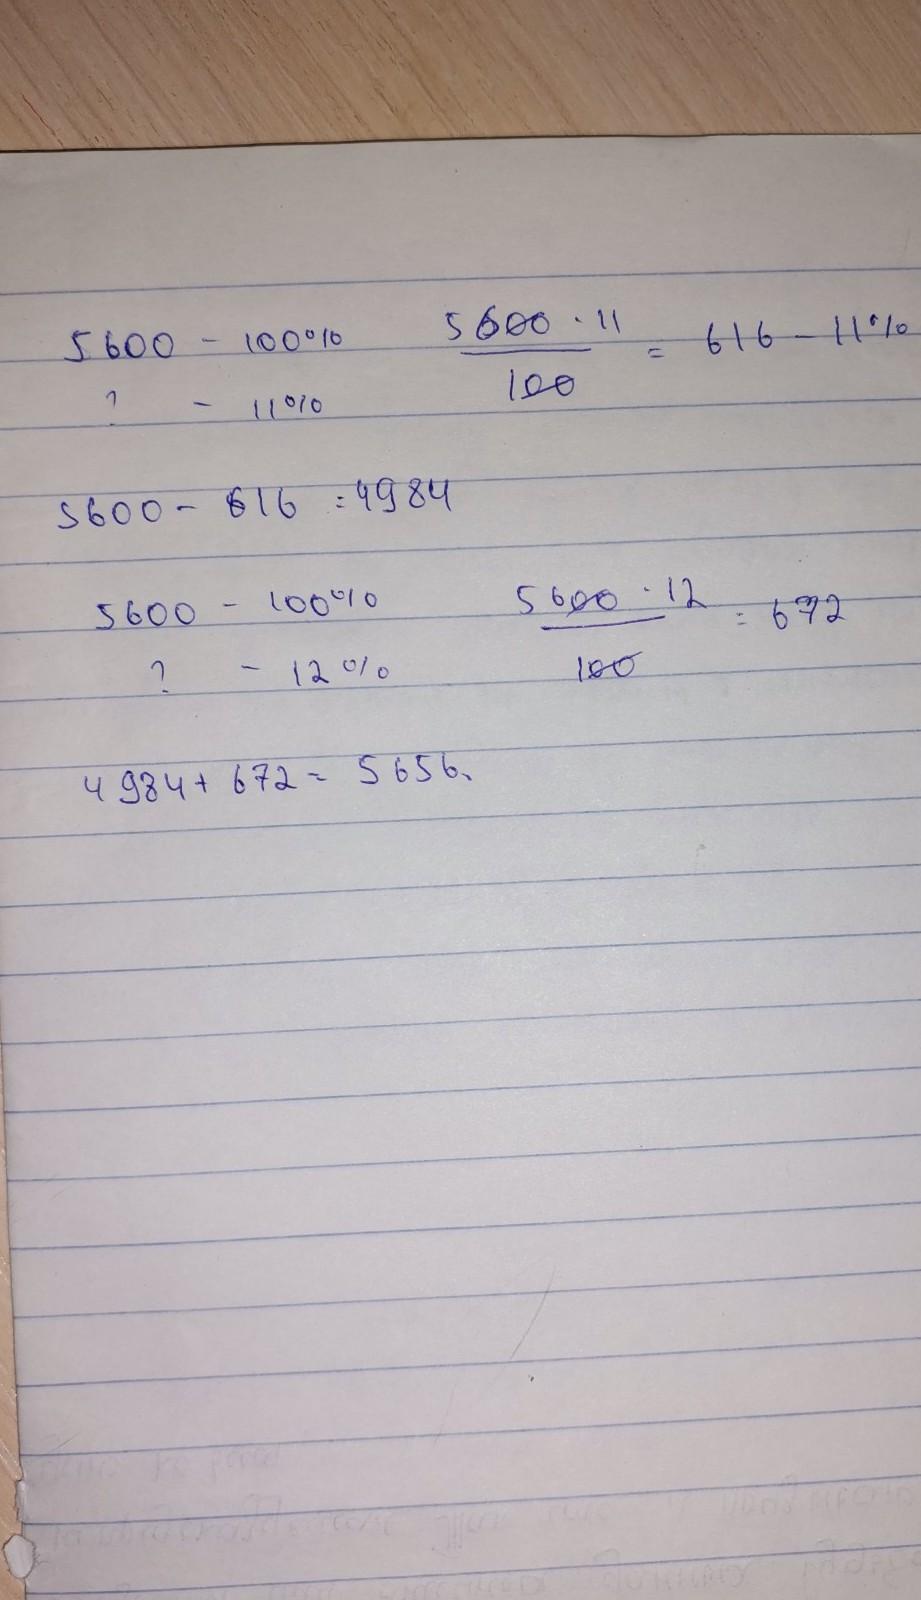 5600 - 100% 5600 · 11 / 100 = 616 - 11%
? - 11%
5600 - 616 = 4984
5600 - 100% 5600 · 12 / 100 = 672
? - 12%
4984 + 672 = 5656.